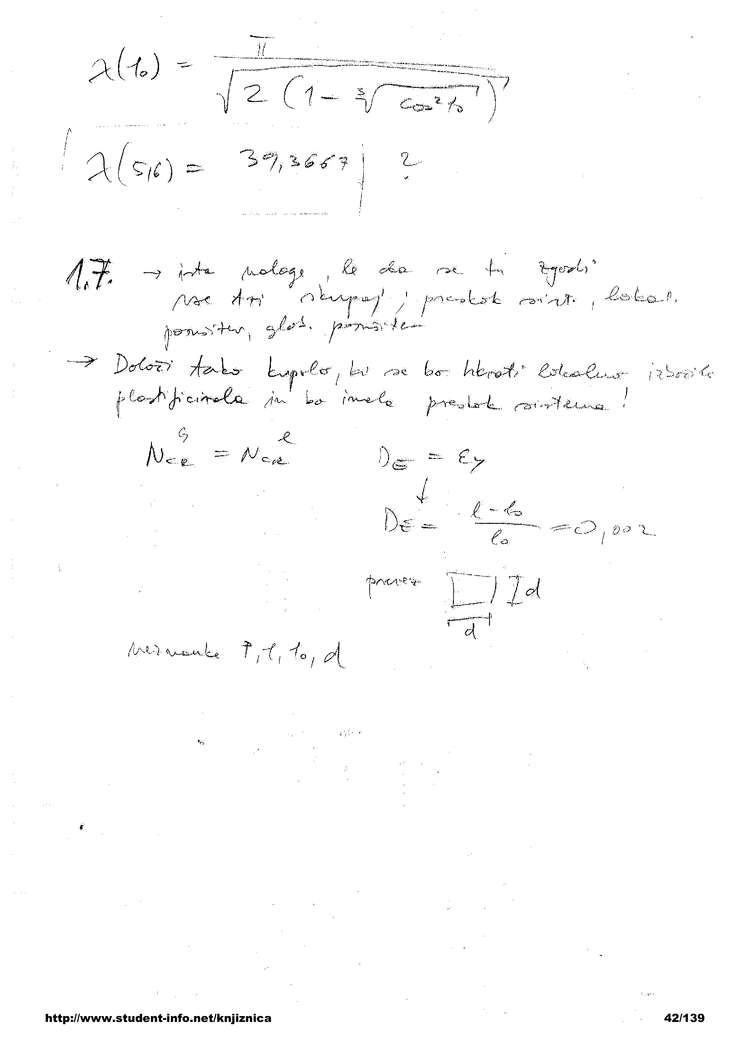 λ(φ₀) = π / √(2 (1 - ∛(cos² φ₀)))
λ(5,6) = 39,3667 ?
1.7. → ista naloga, le da se tu zgodi
vse tri skupaj; preskok sist., lokal.
porušitev, glob. porušitev
→ Določi tako kupolo, ki se bo hkrati lokalno izbočila
plastificirala in bo imela preskok sistema!
N_CR^G = N_CR^l D_E = ε_y
↓
D_E = (l - l₀) / l₀ = 0,002
prerez d
d
neznanke P, φ, φ₀, d
http://www.student-info.net/knjiznica 42/139